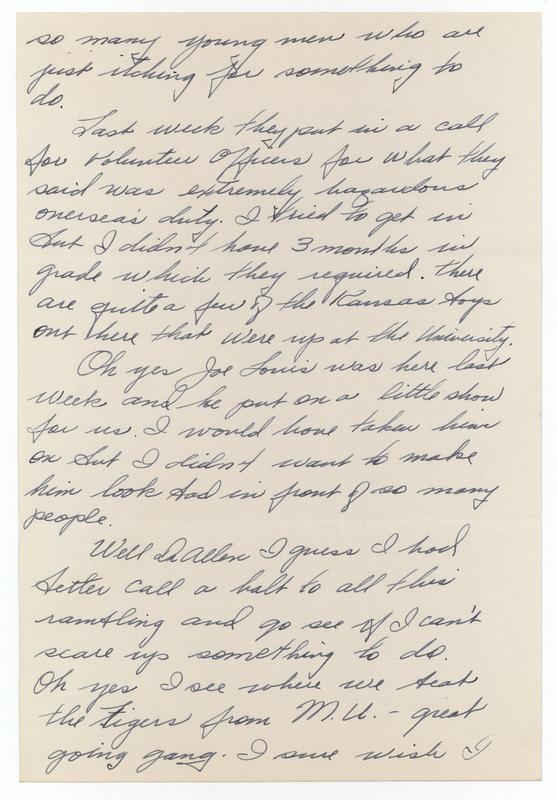 so many young men who are
just itching for something to
do.
Last week they put in a call
for volunteer officers for what they
said was extremely hazardous
overseas duty. I tried to get in
but I didn't have 3 months in
grade which they required. There
are quite a few of the Kansas boys
out here that were up at the University.
Oh yes Joe Louis was here last
week and he put on a little show
for us. I would have taken him
on but I didn't want to make
him look bad in front of so many
people.
Well Dr Allen I guess I had
better call a halt to all this
rambling and go see if I can't
scare up something to do.
Oh yes I see where we beat
the Tigers from M.U. - great
going gang. I sure wish I